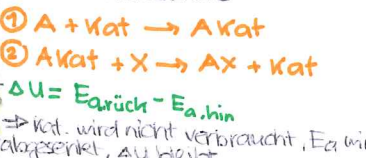 ① A + Kat → AKat
② AKat + X → AX + Kat
ΔU = Ea,rück - Ea,hin
⇒ Kat. wird nicht verbraucht, Ea
abgesenkt, ΔU bleibt